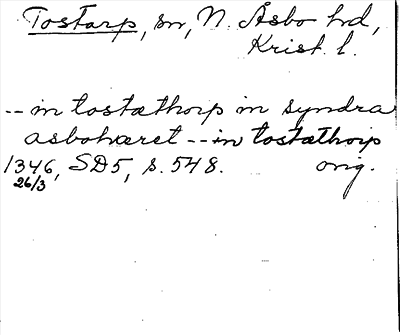 Tostarp, sn, N. Åsbo hd,
Krist. l.
-- in tostæthorp in syndra
asbohæret -- in tostæthorp
1346, SD5, s. 548. orig.
26/3